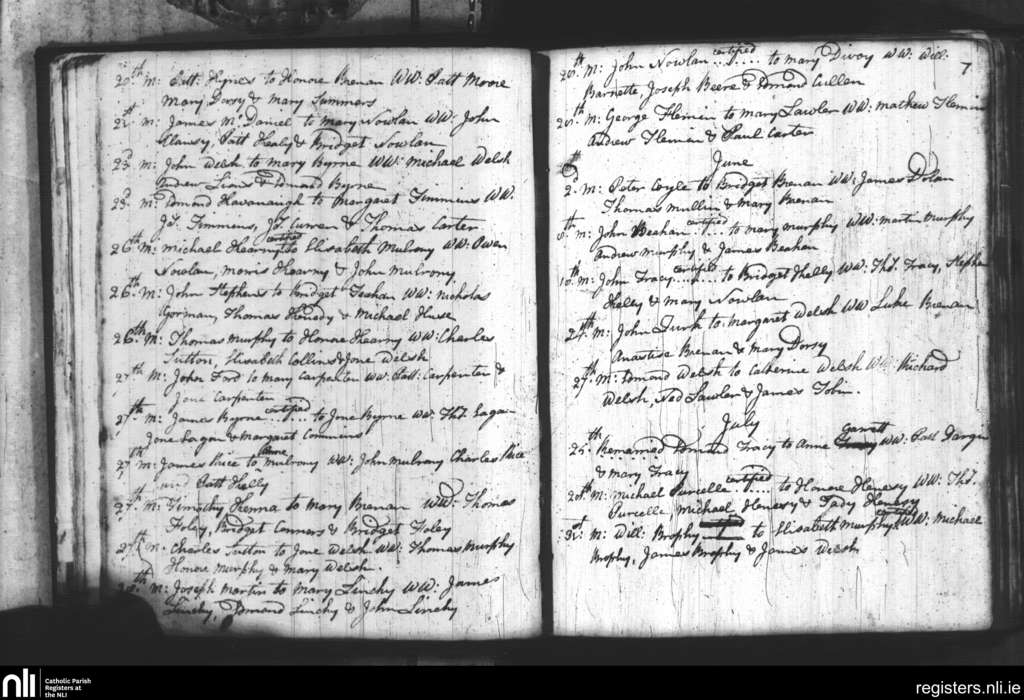 20th M: Patt: Hynes to Honore Brenan WW: Patt Moore
Mary Dorsy & Mary Summers
M: James McDaniel to Mary Nowlan WW: John
Patt Healy & Bridget Nowlan
23d M: John Welsh to Mary Byrne WW: Michael Welsh
Andrew & Edmond Byrne
23d M: Edmond Kavanaugh to Margaret Timmins WW:
Timmins, Curwen & Thomas Carter
26th M: Michael Hearny certified to Elisabeth Mulrony WW: Owen
Nowlan, Morris Hearny & John Mulrony
26th M: John Stephens to Bridget WW: Nicholas
Gorman, Thomas & Michael
26th M: Thomas Murphy to Honore Hearny WW: Charles
Sutton, Elisabeth Collins & Jone Welsh
27th M: John Ford to Mary Carpenter WW: Patt: Carpenter &
Jone Carpenter
27th M: James Byrne certified to Jone Byrne WW: Thos. Eagan
Jone Eagan & Margaret Commins
27th M: James Rice to Anne Mulrony WW: John Mulrony Charles Rice
and Patt Kelly
27th M: Timothy Kenna to Mary Brenan WW: Thomas
Foley, Bridget Connors & Bridget Foley
27th M: Charles Sutton to Jone Welsh WW: Thomas Murphy
Honore Murphy & Mary Welsh.
M: Joseph Martin to Mary Linchy WW: James
Linchy, Edmond Linchy & John Linchy
7
M: John Nowlan certified to Mary Divoy WW: Will:
Barnette, Joseph Beere & Edmond Cullen
M: George Flemin to Mary Lawler WW: Mathew Flemin
Andrew Flemin & Paul Carter
June
2d M: Peter Coyle to Bridget Brenan WW: James Dolan
Thomas Mullin & Mary Brenan
8th M: John Beahan certified to Mary Murphy WW: Martin Murphy
Andrew Murphy & James Beahan
10th M: John Tracy certified to Bridget Kelly WW: Thos. Tracy,
& Mary Nowlan
24th M: John to Margaret Welsh WW Luke Brenan
Anastise Brenan & Mary Dorsy
27th M: Edmond Welsh to Catherine Welsh WW: Richard
Welsh, Ned Lawler & James Tobin.
July
25th Remarried Edmond Tracy to Anne Garrett WW: Patt
& Mary Tracy
M: Michael Purcelle certified to Honore Henesy WW: Thos.
Purcelle, Michael Henesy & Tady Henesy
31st M: Will: Brophy to Elisabeth Murphy certified WW: Michael
Brophy, James Brophy & James Welsh
nli
Catholic Parish
Registers at
the NLI
registers.nli.ie